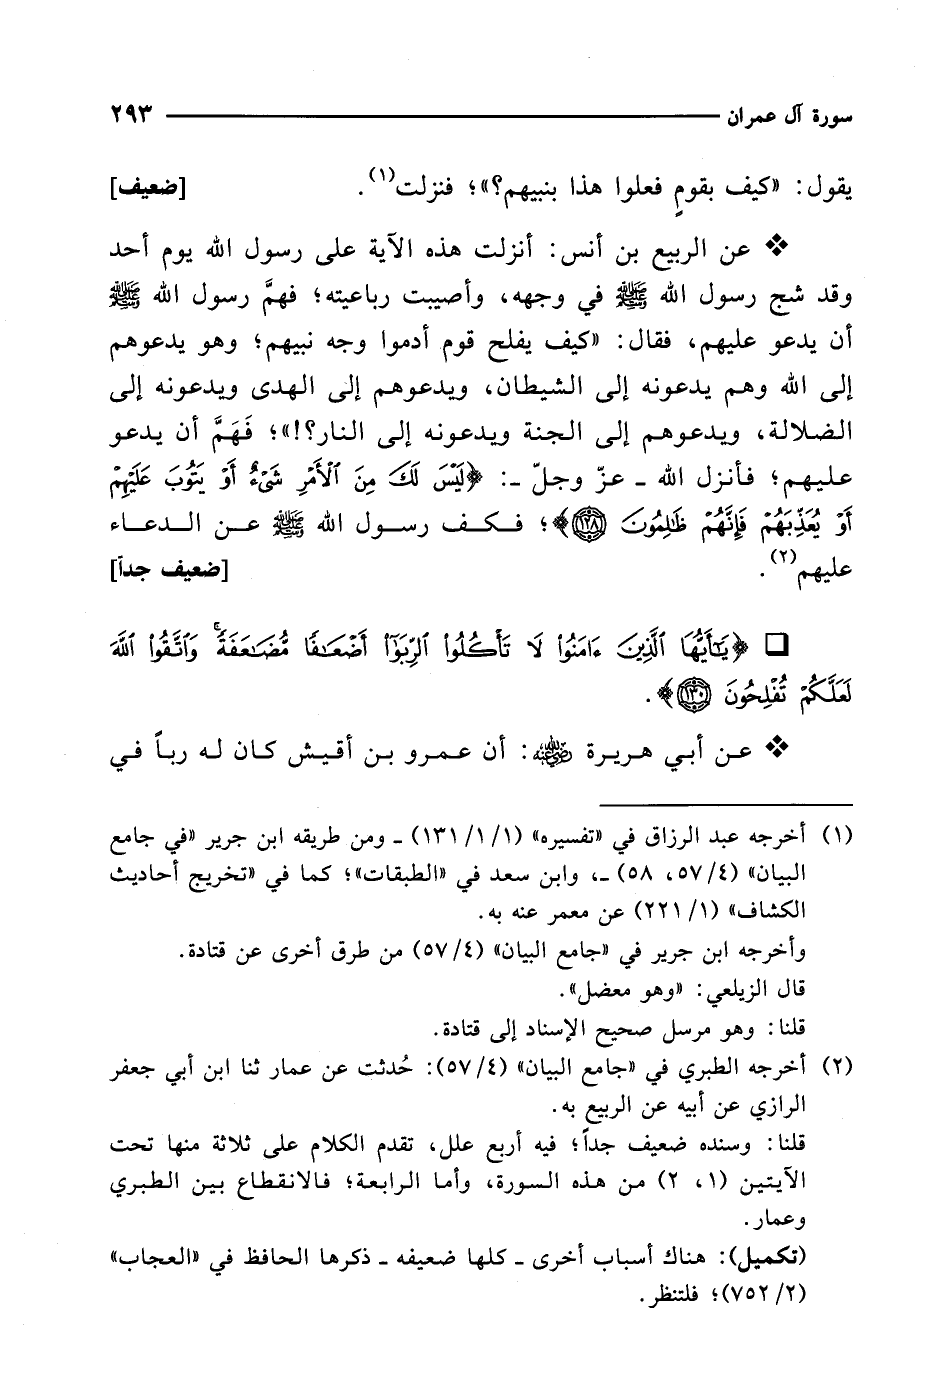 سورة آل عمران ٢٩٣
يقول: «كيف بقومٍ فعلوا هذا بنبيهم؟»؛ فنزلت(١). [ضعيف]
❖ عن الربيع بن أنس: أنزلت هذه الآية على رسول الله يوم أحد
وقد شج رسول الله ﷺ في وجهه، وأصيبت رباعيته؛ فهمَّ رسول الله ﷺ
أن يدعو عليهم، فقال: «كيف يفلح قوم أدموا وجه نبيهم؛ وهو يدعوهم
إلى الله وهم يدعونه إلى الشيطان، ويدعوهم إلى الهدى ويدعونه إلى
الضلالة، ويدعوهم إلى الجنة ويدعونه إلى النار؟!»؛ فَهَمَّ أن يدعو
عليهم؛ فأنزل الله ـ عزّ وجلّ ـ: ﴿لَيْسَ لَكَ مِنَ ٱلْأَمْرِ شَىْءٌ أَوْ يَتُوبَ عَلَيْهِمْ
أَوْ يُعَذِّبَهُمْ فَإِنَّهُمْ ظَٰلِمُونَ ١٢٨﴾؛ فكف رسول الله ﷺ عن الدعاء
عليهم(٢). [ضعيف جداً]
❑ ﴿يَٰٓأَيُّهَا ٱلَّذِينَ ءَامَنُوا۟ لَا تَأْكُلُوا۟ ٱلرِّبَوٰٓا۟ أَضْعَٰفًا مُّضَٰعَفَةً ۖ وَٱتَّقُوا۟ ٱللَّهَ
لَعَلَّكُمْ تُفْلِحُونَ ١٣٠﴾.
❖ عن أبي هريرة رضي الله عنه: أن عمرو بن أقيش كان له رباً في
(١) أخرجه عبد الرزاق في «تفسيره» (١/١/١٣١) ـ ومن طريقه ابن جرير «في جامع
البيان» (٤/٥٧، ٥٨) ـ، وابن سعد في «الطبقات»؛ كما في «تخريج أحاديث
الكشاف» (١/٢٢١) عن معمر عنه به.
وأخرجه ابن جرير في «جامع البيان» (٤/٥٧) من طرق أخرى عن قتادة.
قال الزيلعي: «وهو معضل».
قلنا: وهو مرسل صحيح الإسناد إلى قتادة.
(٢) أخرجه الطبري في «جامع البيان» (٤/٥٧): حُدثت عن عمار ثنا ابن أبي جعفر
الرازي عن أبيه عن الربيع به.
قلنا: وسنده ضعيف جداً؛ فيه أربع علل، تقدم الكلام على ثلاثة منها تحت
الآيتين (١، ٢) من هذه السورة، وأما الرابعة؛ فالانقطاع بين الطبري
وعمار.
(تكميل): هناك أسباب أخرى ـ كلها ضعيفه ـ ذكرها الحافظ في «العجاب»
(٢/٧٥٢)؛ فلتنظر.